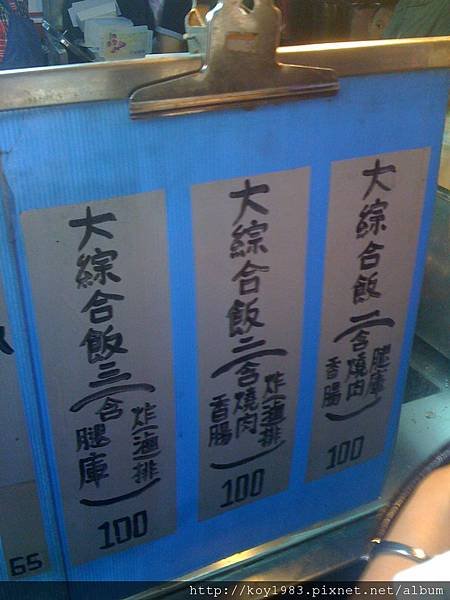 大綜合飯一(含
腿庫
燒肉
香腸)
100
大綜合飯二(含
炸滷排
燒肉
香腸)
100
大綜合飯三(含
炸滷排
腿庫)
100
65
http://koy1983.pixnet.net/album